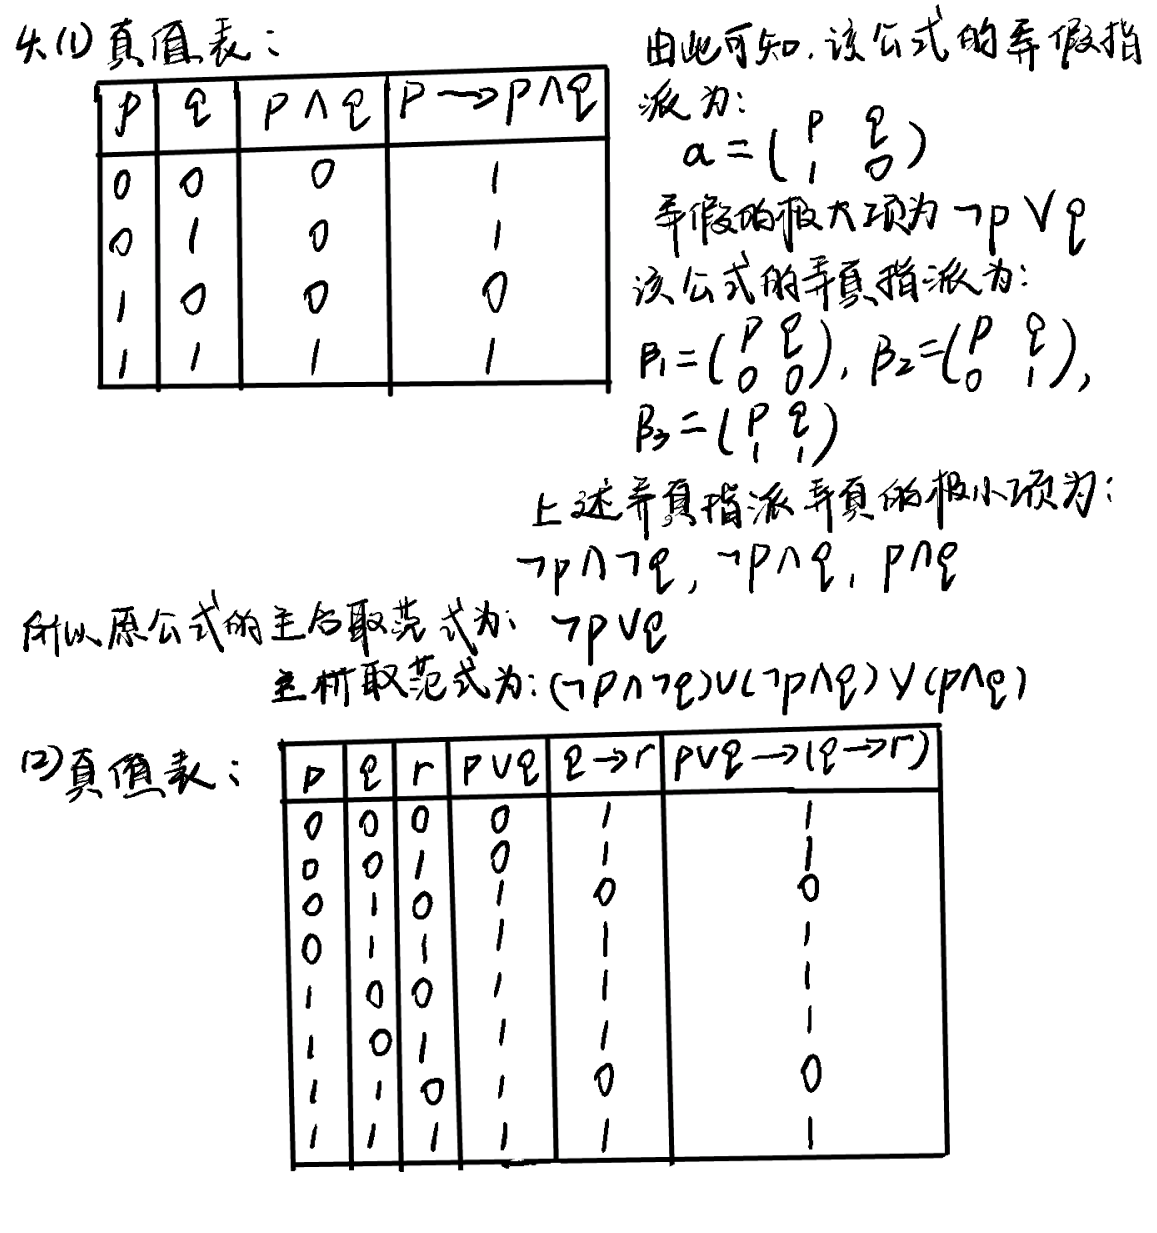 4.(1) 真值表:
p q p∧q p→p∧q
0 0 0 1
0 1 0 1
1 0 0 0
1 1 1 1
由此可知,该公式的弄假指
派为:
α=(p q
1 0)
弄假的极大项为¬p∨q
该公式的弄真指派为:
β1=(p q
0 0), β2=(p q
0 1),
β3=(p q
1 1)
上述弄真指派弄真的极小项为:
¬p∧¬q, ¬p∧q, p∧q
所以原公式的主合取范式为: ¬p∨q
主析取范式为:(¬p∧¬q)∨(¬p∧q)∨(p∧q)
(2)真值表:
p q r p∨q q→r p∨q→(q→r)
0 0 0 0 1 1
0 0 1 0 1 1
0 1 0 1 0 0
0 1 1 1 1 1
1 0 0 1 1 1
1 0 1 1 1 1
1 1 0 1 0 0
1 1 1 1 1 1